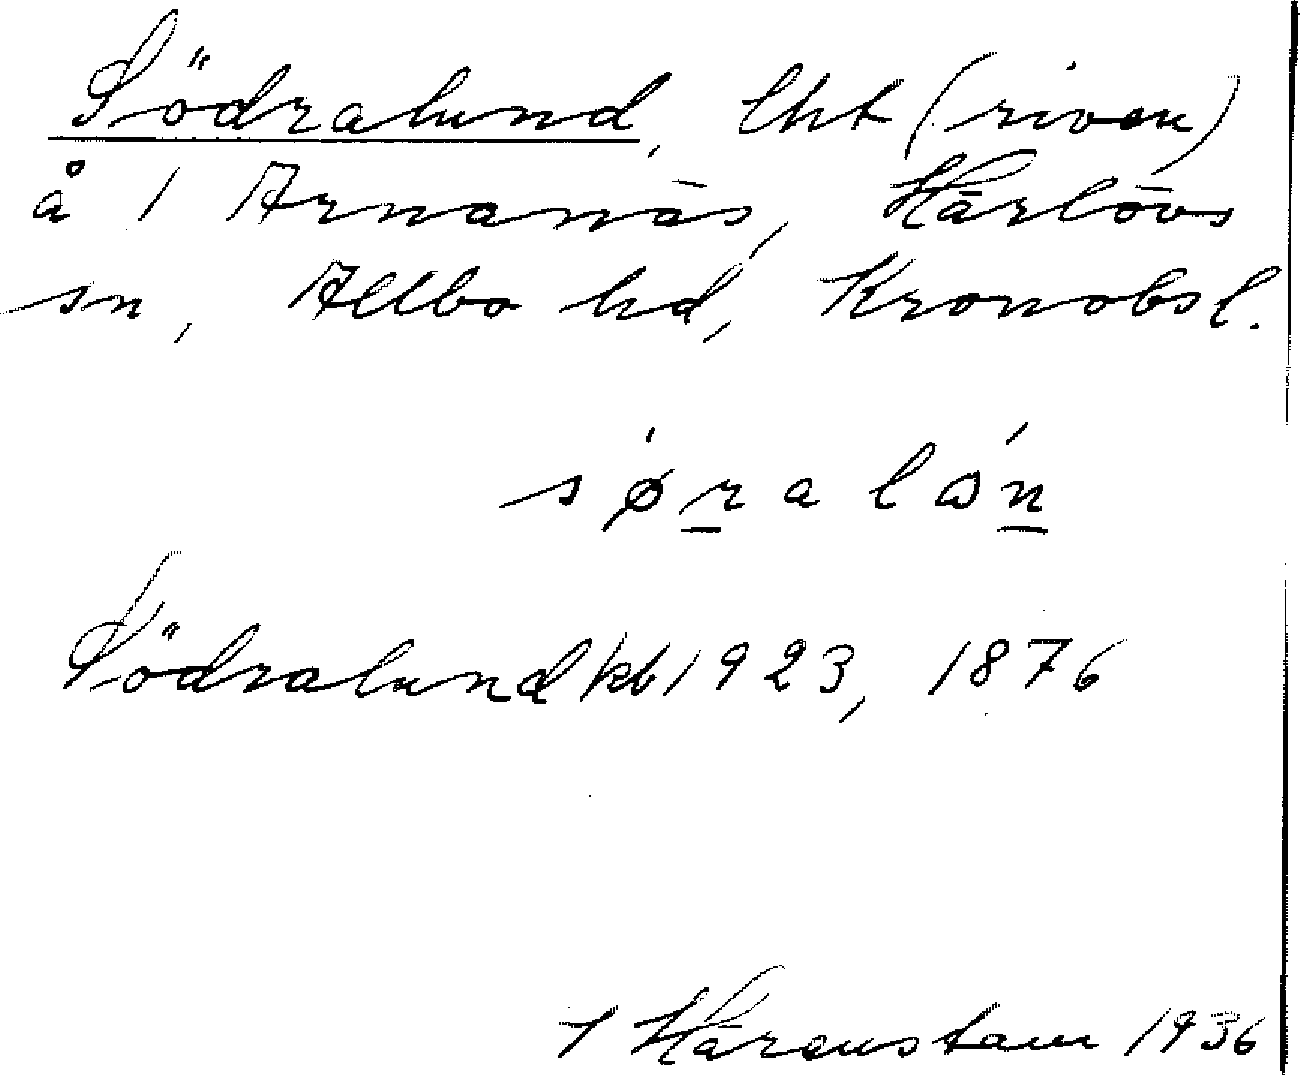 Södralund, lht (riven)
å 1 Arnanäs, Härlövs
sn, Allbo hd, Kronobsl.
sǿralón
Södralund kb 1923, 1876
I Härenstam 1936